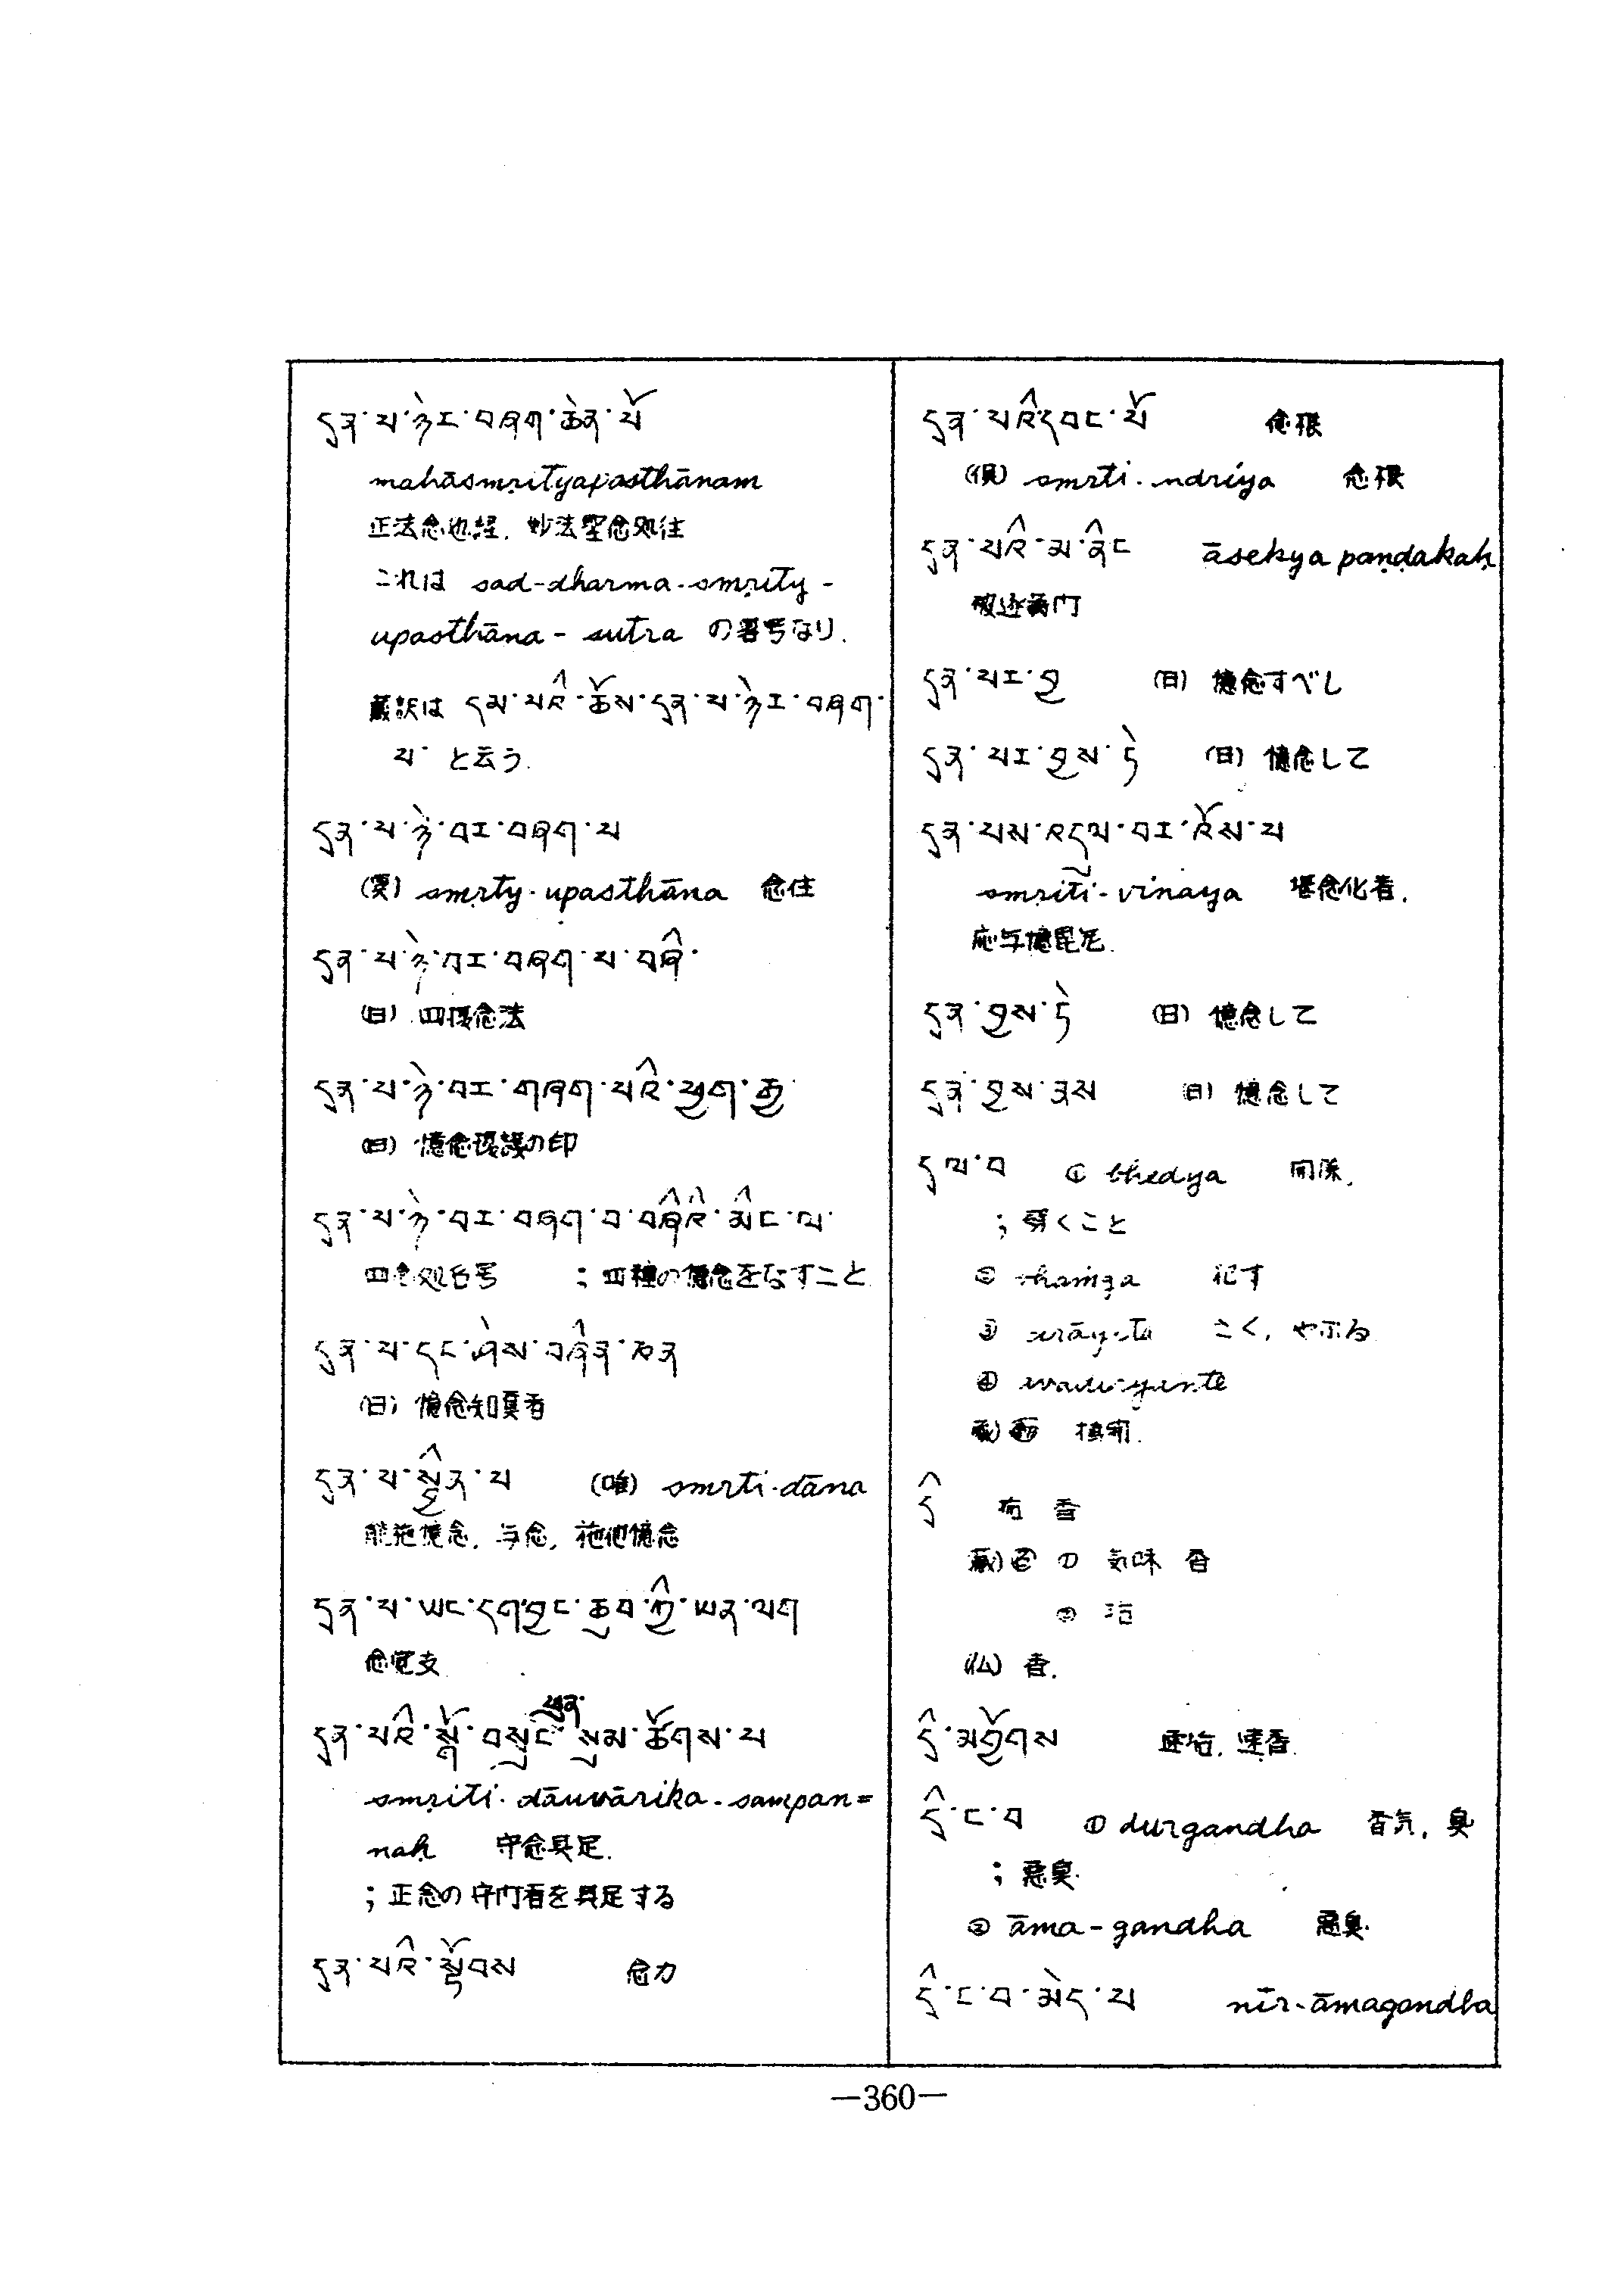 དྲན་པ་ཉེར་བཞག་ཆེན་པོ
mahāsmṛityupasthānam
正法念処経, 妙法聖念処住
これは sad-dharma-smṛity-
upasthāna-sutra の畧号なり.
蔵訳は དམ་པའི་ཆོས་དྲན་པ་ཉེར་བཞག་
པ་ と云う.
དྲན་པ་ཉེ་བར་བཞག་པ
smṛty-upasthāna 念住
དྲན་པ་ཉེ་བར་བཞག་པ་བཞི་
(日) 四種念法
དྲན་པ་ཉེ་བར་གཞག་པའི་ཕྱག་རྒྱ་
(日) 憶念現護の印
དྲན་པ་ཉེ་བར་བཞག་པ་བཞིའི་མིང་ལ་
四念処名号 ; 四種の憶念をなすこと
དྲན་པ་དང་ཤེས་བཞིན་ཅན
(日) 憶念知具者
དྲན་པ་སྦྱིན་པ (唯) smrti-dāna
能施憶念, 与念, 施他憶念
དྲན་པ་ཡང་དག་བྱང་ཆུབ་ཀྱི་ཡན་ལག
念覚支
དྲན་པའི་སྒོ་བསྲུང་ ཕུན་སུམ་ཚོགས་པ
smṛiti-dāuvārika-sampan=
naḥ 守念具足.
; 正念の守門者を具足する
དྲན་པའི་སྟོབས 念力
དྲན་པའི་དབང་པོ 念根
(倶) smrti-ndriya 念根
དྲན་པའི་མ་ནིང āsekya paṇḍakaḥ
དྲན་པར་བྱ (日) 憶念すべし
དྲན་པར་བྱས་ཏེ (日) 憶念して
དྲན་པས་འདུལ་བར་འོས་པ
smṛiti-vinaya 堪念化者.
応与憶毘尼.
དྲན་བྱས་ཏེ (日) 憶念して
དྲན་བྱས་ནས (日) 憶念して
དྲལ་བ ① bhedya 間隙.
; 裂くこと
②
③ さく, やぶる
④
དྲི 垢 香
蔵) ① 気味 香
② 垢
(仏) 香.
དྲི་མགྱོགས 速垢, 速香.
དྲི་ང་བ ① durgandha 香気, 臭
; 悪臭.
② āma-gandha 悪臭.
དྲི་ང་བ་མེད་པ nir-āmagandha
—360—